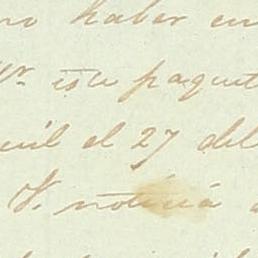 no haber en
Vr. este paquet
uil el 27 del
V. noticia a